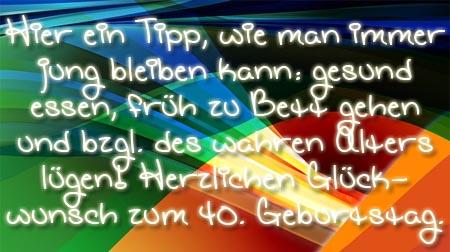 Hier ein Tipp, wie man immer
jung bleiben kann: gesund
essen, früh zu Bett gehen
und bzgl. des wahren Alters
lügen! Herzlichen Glück-
wunsch zum 40. Geburtstag.